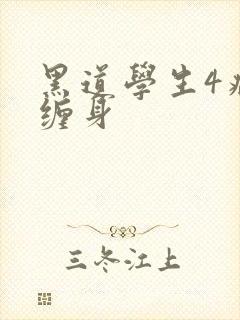 黑道學生4
缠身
三冬江上